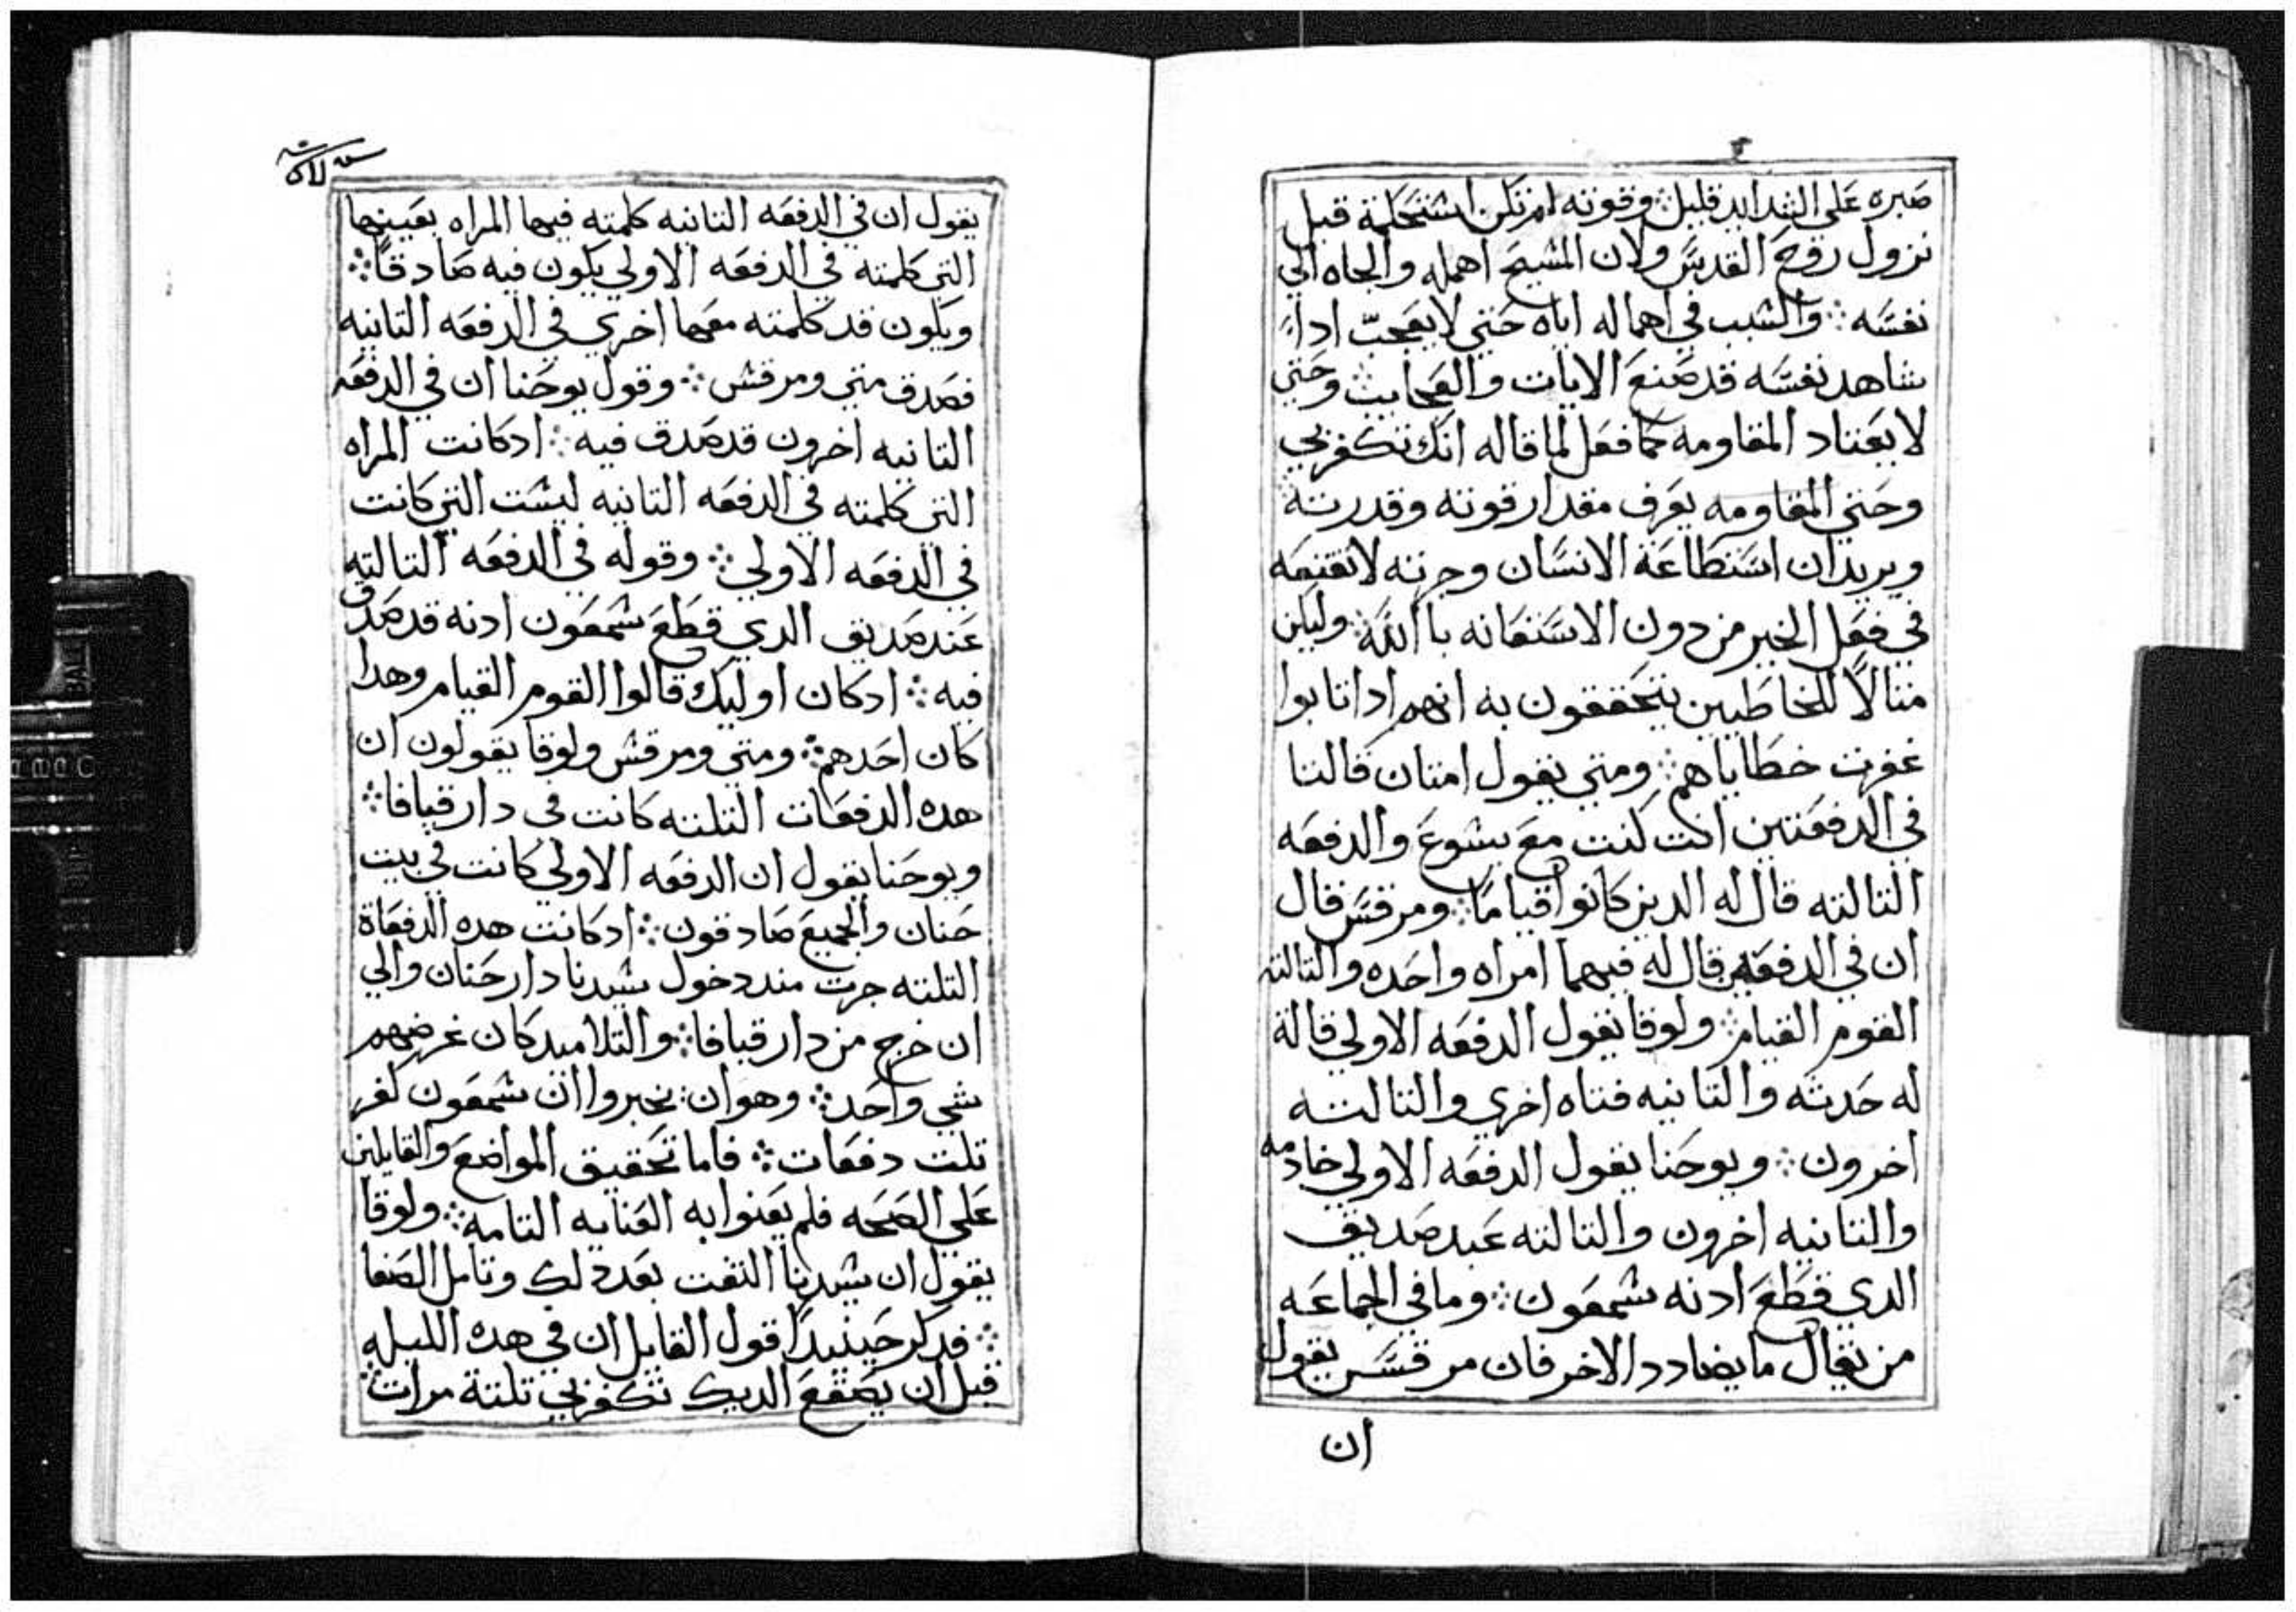 صبره علي الشدايد قليل ⁘ وقوته لم تكن استحكمة قبل
نزول روح القدس ولان المسيح اهمله والجاه الي
نفسه ⁘ والسبب في اهماله اياه حتي لا يعجب اداءً
شاهد نفسه قد صنع الايات والعجايب ⁘ وحتي
لا يعتاد المقاومه كما فعل لما قاله انك تكفر بي
وحتي المقاومه يعرف مقدار قوته وقدرته
ويريد ان استطاعة الانسان وحريته لا تقنعه
في فعل الخير من دون الاستعانه باالله ⁘ وليكن
متالاً للخاطيين يتحققون به انهم ادا تابوا
غفرت خطاياهم ⁘ ومتي يقول امتان قالتا
في الدفعتين انت كنت مع يسوع والدفعه
التالته قال له الدين كانوا قياماً ⁘ ومرقس قال
ان في الدفعتين قال له فيهما امراه واحده والتالته
القوم القيام ⁘ ولوقا يقول الدفعه الاولي قالة
له حدثه والتانيه فتاه اخري والتالته
اخرون ⁘ ويوحنا يقول الدفعه الاولي خادمه
والتانيه اخرون والتالته عبد صديق
الدي قطع ادنه شمعون ⁘ وما في الجماعه
من يقال ما يضادد الاخر فان مرقس يقول
ان
يقول ان في الدفعه التانيه كلمته فيها المراه بعينها
التي كلمته في الدفعه الاولي يكون فيه صادقاً ⁘
ويكون قد كلمته معها اخري في الدفعه التانيه
فصدق متي ومرقس ⁘ وقول يوحنا ان في الدفعه
التانيه اخرون قد صدق فيه ⁘ ادكانت المراه
التي كلمته في الدفعه التانيه ليست التي كانت
في الدفعه الاولي ⁘ وقوله في الدفعه التالته
عند صديق الدي قطع شمعون ادنه قد صدق
فيه ⁘ ادكان اوليك قالوا القوم القيام وهدا
كان احدهم ⁘ ومتي ومرقس ولوقا يقولون ان
هده الدفعات التلته كانت في دار قيافا ⁘
ويوحنا يقول ان الدفعه الاولي كانت في بيت
حنان والجميع صادقون ⁘ ادكانت هده الدفعاة
التلته جرت مند دخول سيدنا دار حنان والي
ان خرج من دار قيافا ⁘ والتلاميد كان غرضهم
شي واحد ⁘ وهو ان يخبروا ان شمعون كفر
تلت دفعات ⁘ فاما تحقيق المواضع والقايلين
علي الصحه فلم يعنوا به العنايه التامه ⁘ ولوقا
يقول ان سيدنا التفت بعد دلك وتامل الصفا
⁘ فدكر حينيداً قول القايل ان في هده الليله
قبل ان يصقع الديك تكفر بي تلتة مرات ⁘